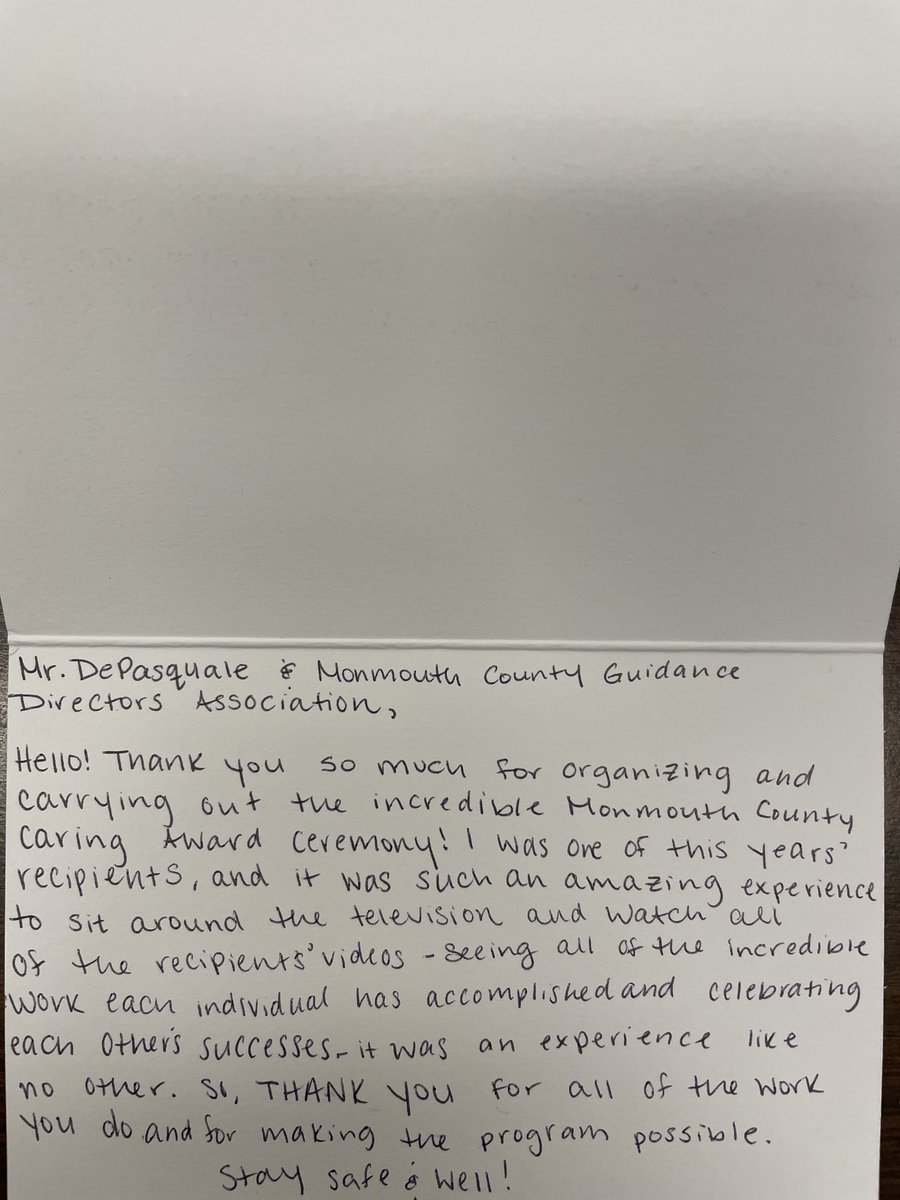 Mr. DePasquale & Monmouth County Guidance
Directors Association,
Hello! Thank you so much for organizing and
carrying out the incredible Monmouth County
Caring Award Ceremony! I was one of this years'
recipients, and it was such an amazing experience
to sit around the television and watch all
of the recipients' videos - seeing all of the incredible
work each individual has accomplished and celebrating
each other's successes - it was an experience like
no other. So, THANK YOU for all of the work
you do and for making the program possible.
Stay safe & well!